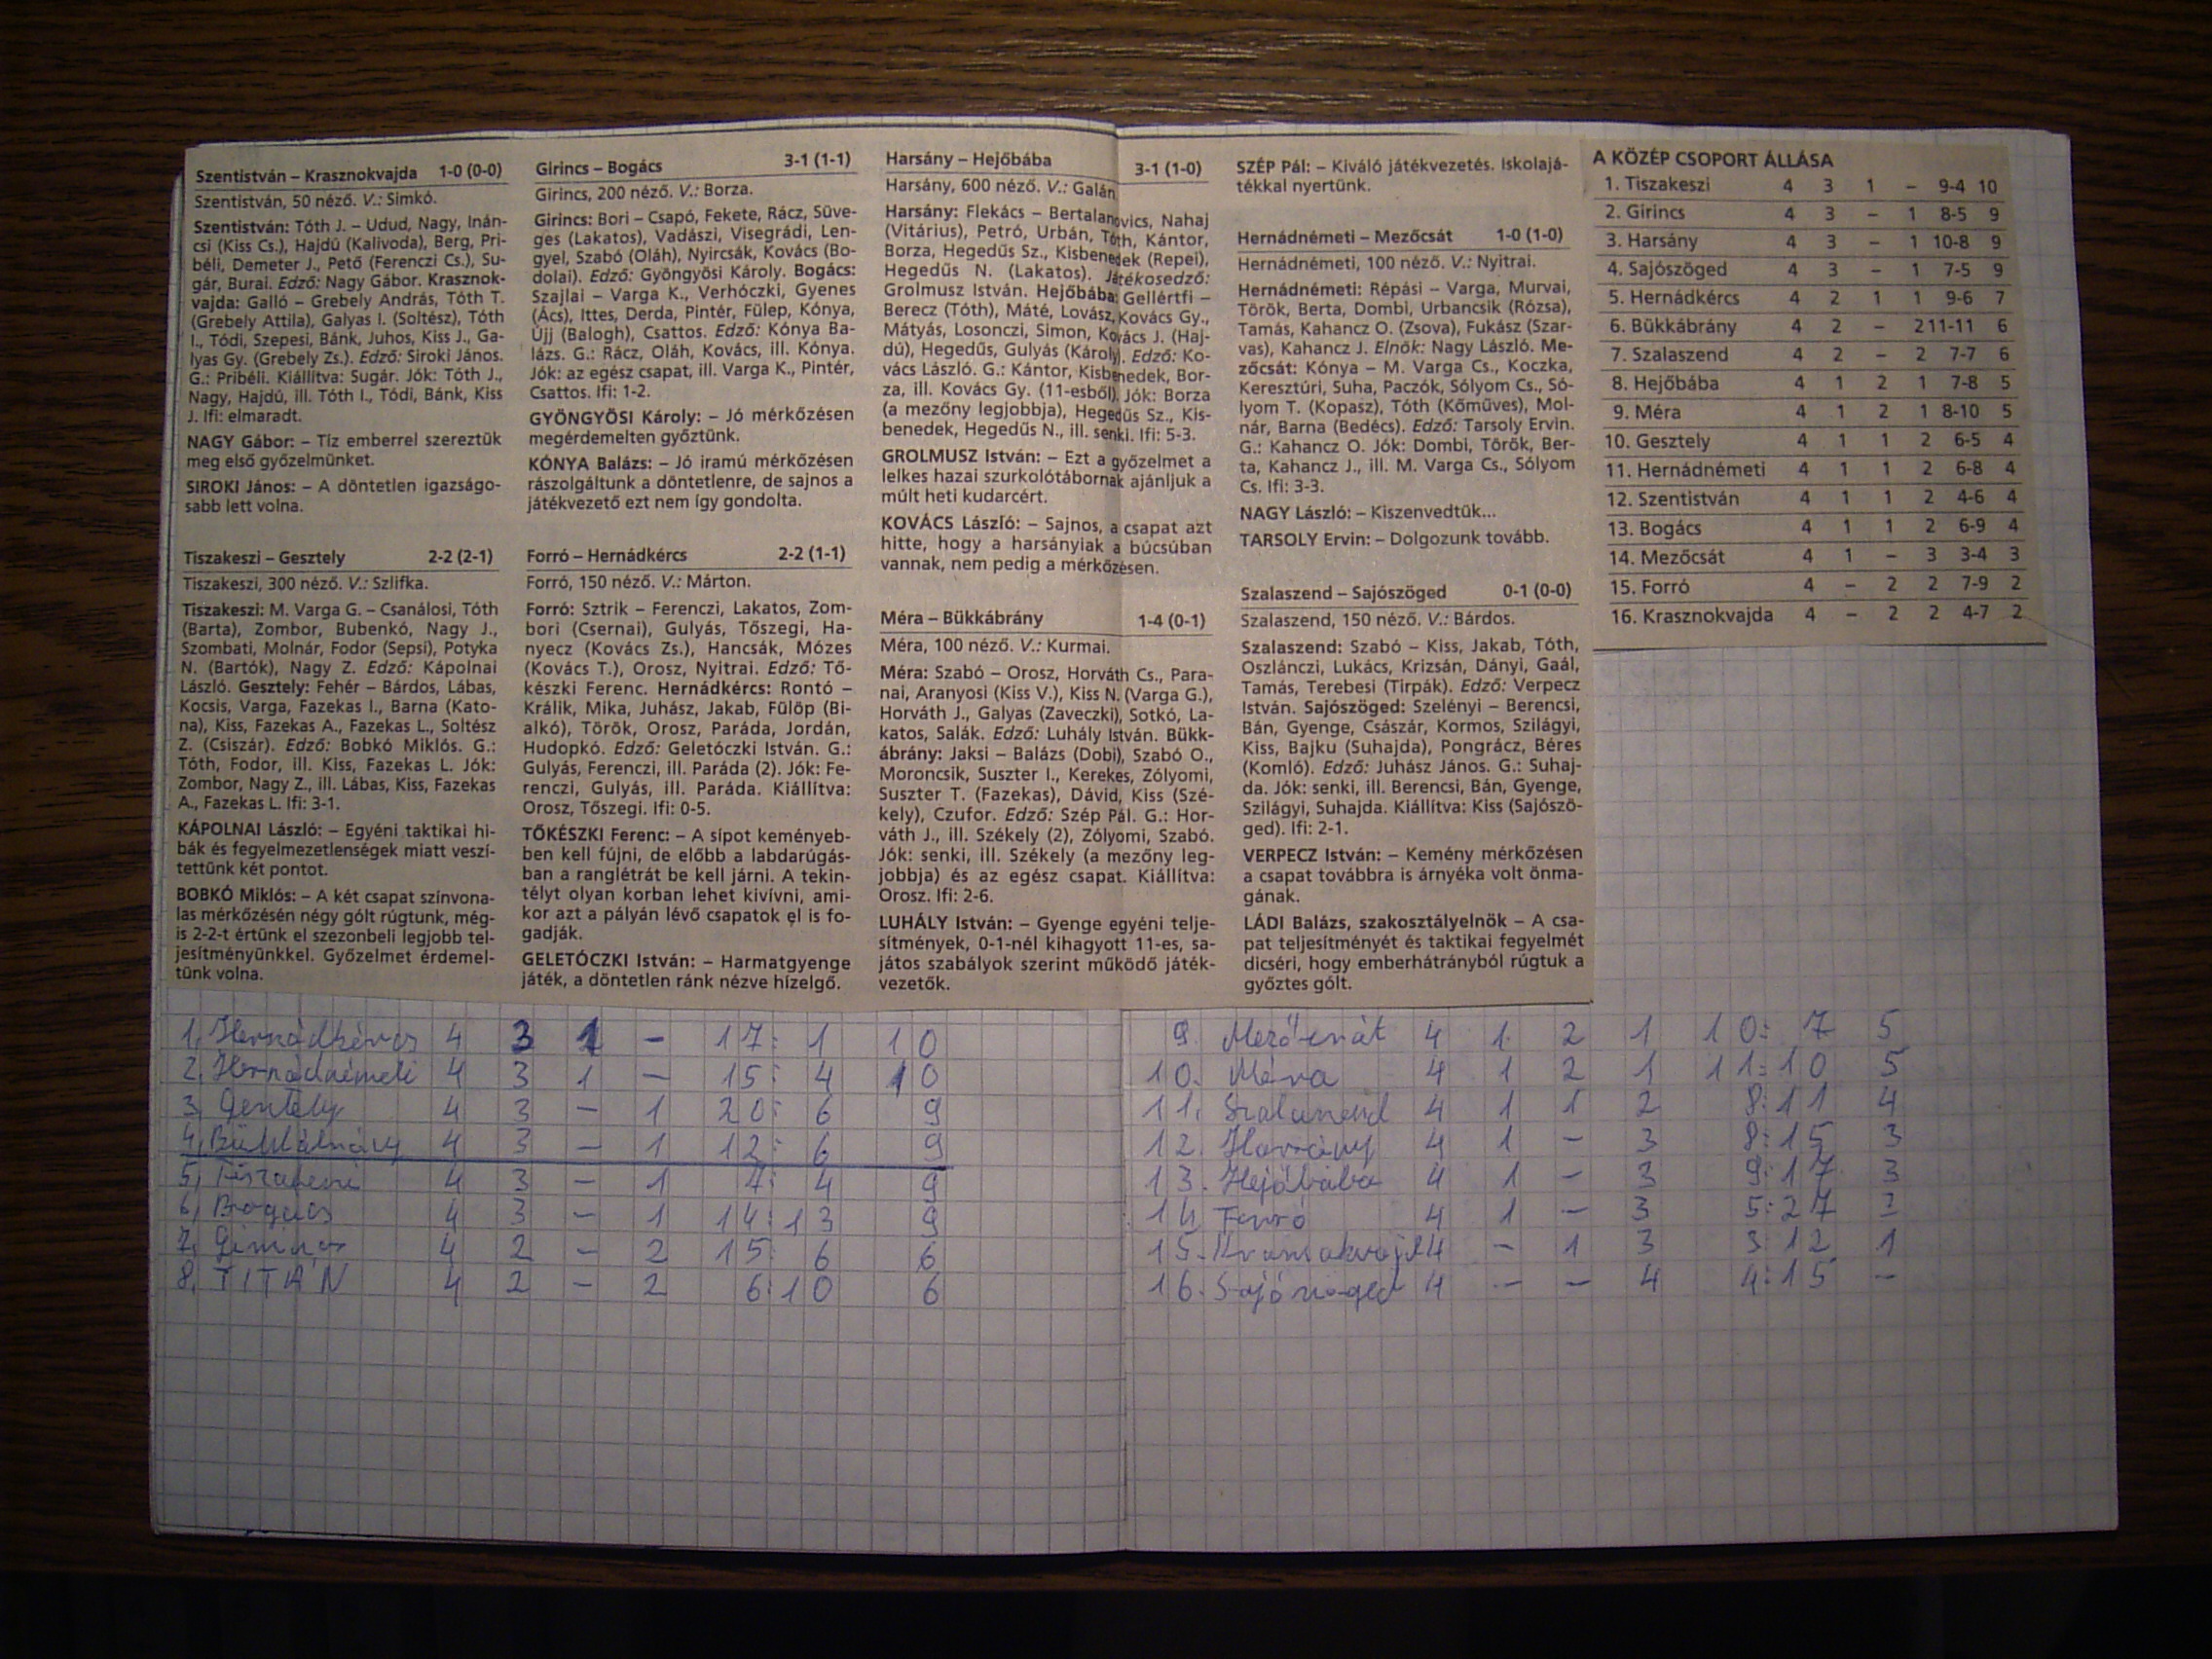 Szentistván – Krasznokvajda 1-0 (0-0)
Szentistván, 50 néző. V.: Simkó.
Szentistván: Tóth J. – Udud, Nagy, Inán-
csi (Kiss Cs.), Hajdú (Kalivoda), Berg, Pri-
béli, Demeter J., Pető (Ferenczi Cs.), Su-
gár, Burai. Edző: Nagy Gábor. Krasznok-
vajda: Galló – Grebely András, Tóth T.
(Grebely Attila), Galyas I. (Soltész), Tóth
I., Tódi, Szepesi, Bánk, Juhos, Kiss J., Ga-
lyas Gy. (Grebely Zs.). Edző: Siroki János.
G.: Pribéli. Kiállítva: Sugár. Jók: Tóth J.,
Nagy, Hajdú, ill. Tóth I., Tódi, Bánk, Kiss
J. Ifi: elmaradt.
NAGY Gábor: – Tíz emberrel szereztük
meg első győzelmünket.
SIROKI János: – A döntetlen igazságo-
sabb lett volna.
Tiszakeszi – Gesztely 2-2 (2-1)
Tiszakeszi, 300 néző. V.: Szlifka.
Tiszakeszi: M. Varga G. – Csanálosi, Tóth
(Barta), Zombor, Bubenkó, Nagy J.,
Szombati, Molnár, Fodor (Sepsi), Potyka
N. (Bartók), Nagy Z. Edző: Kápolnai
László. Gesztely: Fehér – Bárdos, Lábas,
Kocsis, Varga, Fazekas I., Barna (Kato-
na), Kiss, Fazekas A., Fazekas L., Soltész
Z. (Csiszár). Edző: Bobkó Miklós. G.:
Tóth, Fodor, ill. Kiss, Fazekas L. Jók:
Zombor, Nagy Z., ill. Lábas, Kiss, Fazekas
A., Fazekas L. Ifi: 3-1.
KÁPOLNAI László: – Egyéni taktikai hi-
bák és fegyelmezetlenségek miatt veszí-
tettünk két pontot.
BOBKÓ Miklós: – A két csapat színvona-
las mérkőzésén négy gólt rúgtunk, még-
is 2-2-t értünk el szezonbeli legjobb tel-
jesítményünkkel. Győzelmet érdemel-
tünk volna.
Girincs – Bogács 3-1 (1-1)
Girincs, 200 néző. V.: Borza.
Girincs: Bori – Csapó, Fekete, Rácz, Süve-
ges (Lakatos), Vadászi, Visegrádi, Len-
gyel, Szabó (Oláh), Nyircsák, Kovács (Bo-
dolai). Edző: Gyöngyösi Károly. Bogács:
Szajlai – Varga K., Verhóczki, Gyenes
(Ács), Ittes, Derda, Pintér, Fülep, Kónya,
Újj (Balogh), Csattos. Edző: Kónya Ba-
lázs. G.: Rácz, Oláh, Kovács, ill. Kónya.
Jók: az egész csapat, ill. Varga K., Pintér,
Csattos. Ifi: 1-2.
GYÖNGYÖSI Károly: – Jó mérkőzésen
megérdemelten győztünk.
KÓNYA Balázs: – Jó iramú mérkőzésen
rászolgáltunk a döntetlenre, de sajnos a
játékvezető ezt nem így gondolta.
Forró – Hernádkércs 2-2 (1-1)
Forró, 150 néző. V.: Márton.
Forró: Sztrik – Ferenczi, Lakatos, Zom-
bori (Csernai), Gulyás, Tőszegi, Ha-
nyecz (Kovács Zs.), Hancsák, Mózes
(Kovács T.), Orosz, Nyitrai. Edző: Tő-
készki Ferenc. Hernádkércs: Rontó –
Králik, Mika, Juhász, Jakab, Fülöp (Bi-
alkó), Török, Orosz, Paráda, Jordán,
Hudopkó. Edző: Geletóczki István. G.:
Gulyás, Ferenczi, ill. Paráda (2). Jók: Fe-
renczi, Gulyás, ill. Paráda. Kiállítva:
Orosz, Tőszegi. Ifi: 0-5.
TŐKÉSZKI Ferenc: – A sípot keményeb-
ben kell fújni, de előbb a labdarúgás-
ban a ranglétrát be kell járni. A tekin-
télyt olyan korban lehet kivívni, ami-
kor azt a pályán lévő csapatok el is fo-
gadják.
GELETÓCZKI István: – Harmatgyenge
játék, a döntetlen ránk nézve hízelgő.
Harsány – Hejőbába 3-1 (1-0)
Harsány, 600 néző. V.: Galán.
Harsány: Flekács – Bertalanovics, Nahaj
(Vitárius), Petró, Urbán, Tóth, Kántor,
Borza, Hegedűs Sz., Kisbenedek (Repei),
Hegedűs N. (Lakatos). Játékosedző:
Grolmusz István. Hejőbába: Gellértfi –
Berecz (Tóth), Máté, Lovász, Kovács Gy.,
Mátyás, Losonczi, Simon, Kovács J. (Haj-
dú), Hegedűs, Gulyás (Károly). Edző: Ko-
vács László. G.: Kántor, Kisbenedek, Bor-
za, ill. Kovács Gy. (11-esből). Jók: Borza
(a mezőny legjobbja), Hegedűs Sz., Kis-
benedek, Hegedűs N., ill. senki. Ifi: 5-3.
GROLMUSZ István: – Ezt a győzelmet a
lelkes hazai szurkolótábornak ajánljuk a
múlt heti kudarcért.
KOVÁCS László: – Sajnos, a csapat azt
hitte, hogy a harsányiak a búcsúban
vannak, nem pedig a mérkőzésen.
Méra – Bükkábrány 1-4 (0-1)
Méra, 100 néző. V.: Kurmai.
Méra: Szabó – Orosz, Horváth Cs., Para-
nai, Aranyosi (Kiss V.), Kiss N. (Varga G.),
Horváth J., Galyas (Zaveczki), Sotkó, La-
katos, Salák. Edző: Luhály István. Bükk-
ábrány: Jaksi – Balázs (Dobi), Szabó O.,
Moroncsik, Suszter I., Kerekes, Zólyomi,
Suszter T. (Fazekas), Dávid, Kiss (Szé-
kely), Czufor. Edző: Szép Pál. G.: Hor-
váth J., ill. Székely (2), Zólyomi, Szabó.
Jók: senki, ill. Székely (a mezőny leg-
jobbja) és az egész csapat. Kiállítva:
Orosz. Ifi: 2-6.
LUHÁLY István: – Gyenge egyéni telje-
sítmények, 0-1-nél kihagyott 11-es, sa-
játos szabályok szerint működő játék-
vezetők.
SZÉP Pál: – Kiváló játékvezetés. Iskolajá-
tékkal nyertünk.
Hernádnémeti – Mezőcsát 1-0 (1-0)
Hernádnémeti, 100 néző. V.: Nyitrai.
Hernádnémeti: Répási – Varga, Murvai,
Török, Berta, Dombi, Urbancsik (Rózsa),
Tamás, Kahancz O. (Zsova), Fukász (Szar-
vas), Kahancz J. Elnök: Nagy László. Me-
zőcsát: Kónya – M. Varga Cs., Koczka,
Keresztúri, Suha, Paczók, Sólyom Cs., Só-
lyom T. (Kopasz), Tóth (Kőműves), Mol-
nár, Barna (Bedécs). Edző: Tarsoly Ervin.
G.: Kahancz O. Jók: Dombi, Török, Ber-
ta, Kahancz J., ill. M. Varga Cs., Sólyom
Cs. Ifi: 3-3.
NAGY László: – Kiszenvedtük...
TARSOLY Ervin: – Dolgozunk tovább.
Szalaszend – Sajószöged 0-1 (0-0)
Szalaszend, 150 néző. V.: Bárdos.
Szalaszend: Szabó – Kiss, Jakab, Tóth,
Oszlánczi, Lukács, Krizsán, Dányi, Gaál,
Tamás, Terebesi (Tirpák). Edző: Verpecz
István. Sajószöged: Szelényi – Berencsi,
Bán, Gyenge, Császár, Kormos, Szilágyi,
Kiss, Bajku (Suhajda), Pongrácz, Béres
(Komló). Edző: Juhász János. G.: Suhaj-
da. Jók: senki, ill. Berencsi, Bán, Gyenge,
Szilágyi, Suhajda. Kiállítva: Kiss (Sajószö-
ged). Ifi: 2-1.
VERPECZ István: – Kemény mérkőzésen
a csapat továbbra is árnyéka volt önma-
gának.
LÁDI Balázs, szakosztályelnök – A csa-
pat teljesítményét és taktikai fegyelmét
dicséri, hogy emberhátrányból rúgtuk a
győztes gólt.
A KÖZÉP CSOPORT ÁLLÁSA
1. Tiszakeszi 4 3 1 – 9-4 10
2. Girincs 4 3 – 1 8-5 9
3. Harsány 4 3 – 1 10-8 9
4. Sajószöged 4 3 – 1 7-5 9
5. Hernádkércs 4 2 1 1 9-6 7
6. Bükkábrány 4 2 – 2 11-11 6
7. Szalaszend 4 2 – 2 7-7 6
8. Hejőbába 4 1 2 1 7-8 5
9. Méra 4 1 2 1 8-10 5
10. Gesztely 4 1 1 2 6-5 4
11. Hernádnémeti 4 1 1 2 6-8 4
12. Szentistván 4 1 1 2 4-6 4
13. Bogács 4 1 1 2 6-9 4
14. Mezőcsát 4 1 – 3 3-4 3
15. Forró 4 – 2 2 7-9 2
16. Krasznokvajda 4 – 2 2 4-7 2
1, Hernádkércs 4 3 1 – 17:1 10
2, Hernádnémeti 4 3 1 – 15:4 10
3, Gesztely 4 3 – 1 20:6 9
4, Bükkábrány 4 3 – 1 12:6 9
5, Tiszakeszi 4 3 – 1 7:4 9
6, Bogács 4 3 – 1 14:13 9
7, Girincs 4 2 – 2 15:6 6
8, TITÁN 4 2 – 2 6:10 6
9. Mezőcsát 4 1 2 1 10:7 5
10. Méra 4 1 2 1 11:10 5
11. Szalaszend 4 1 1 2 8:11 4
12. Harsány 4 1 – 3 8:15 3
13. Hejőbába 4 1 – 3 9:17 3
14 Forró 4 1 – 3 5:27
15. Krasznokvajd 4 – 1 3 3:12 1
16. Sajószöged 4 – – 4 4:15 –